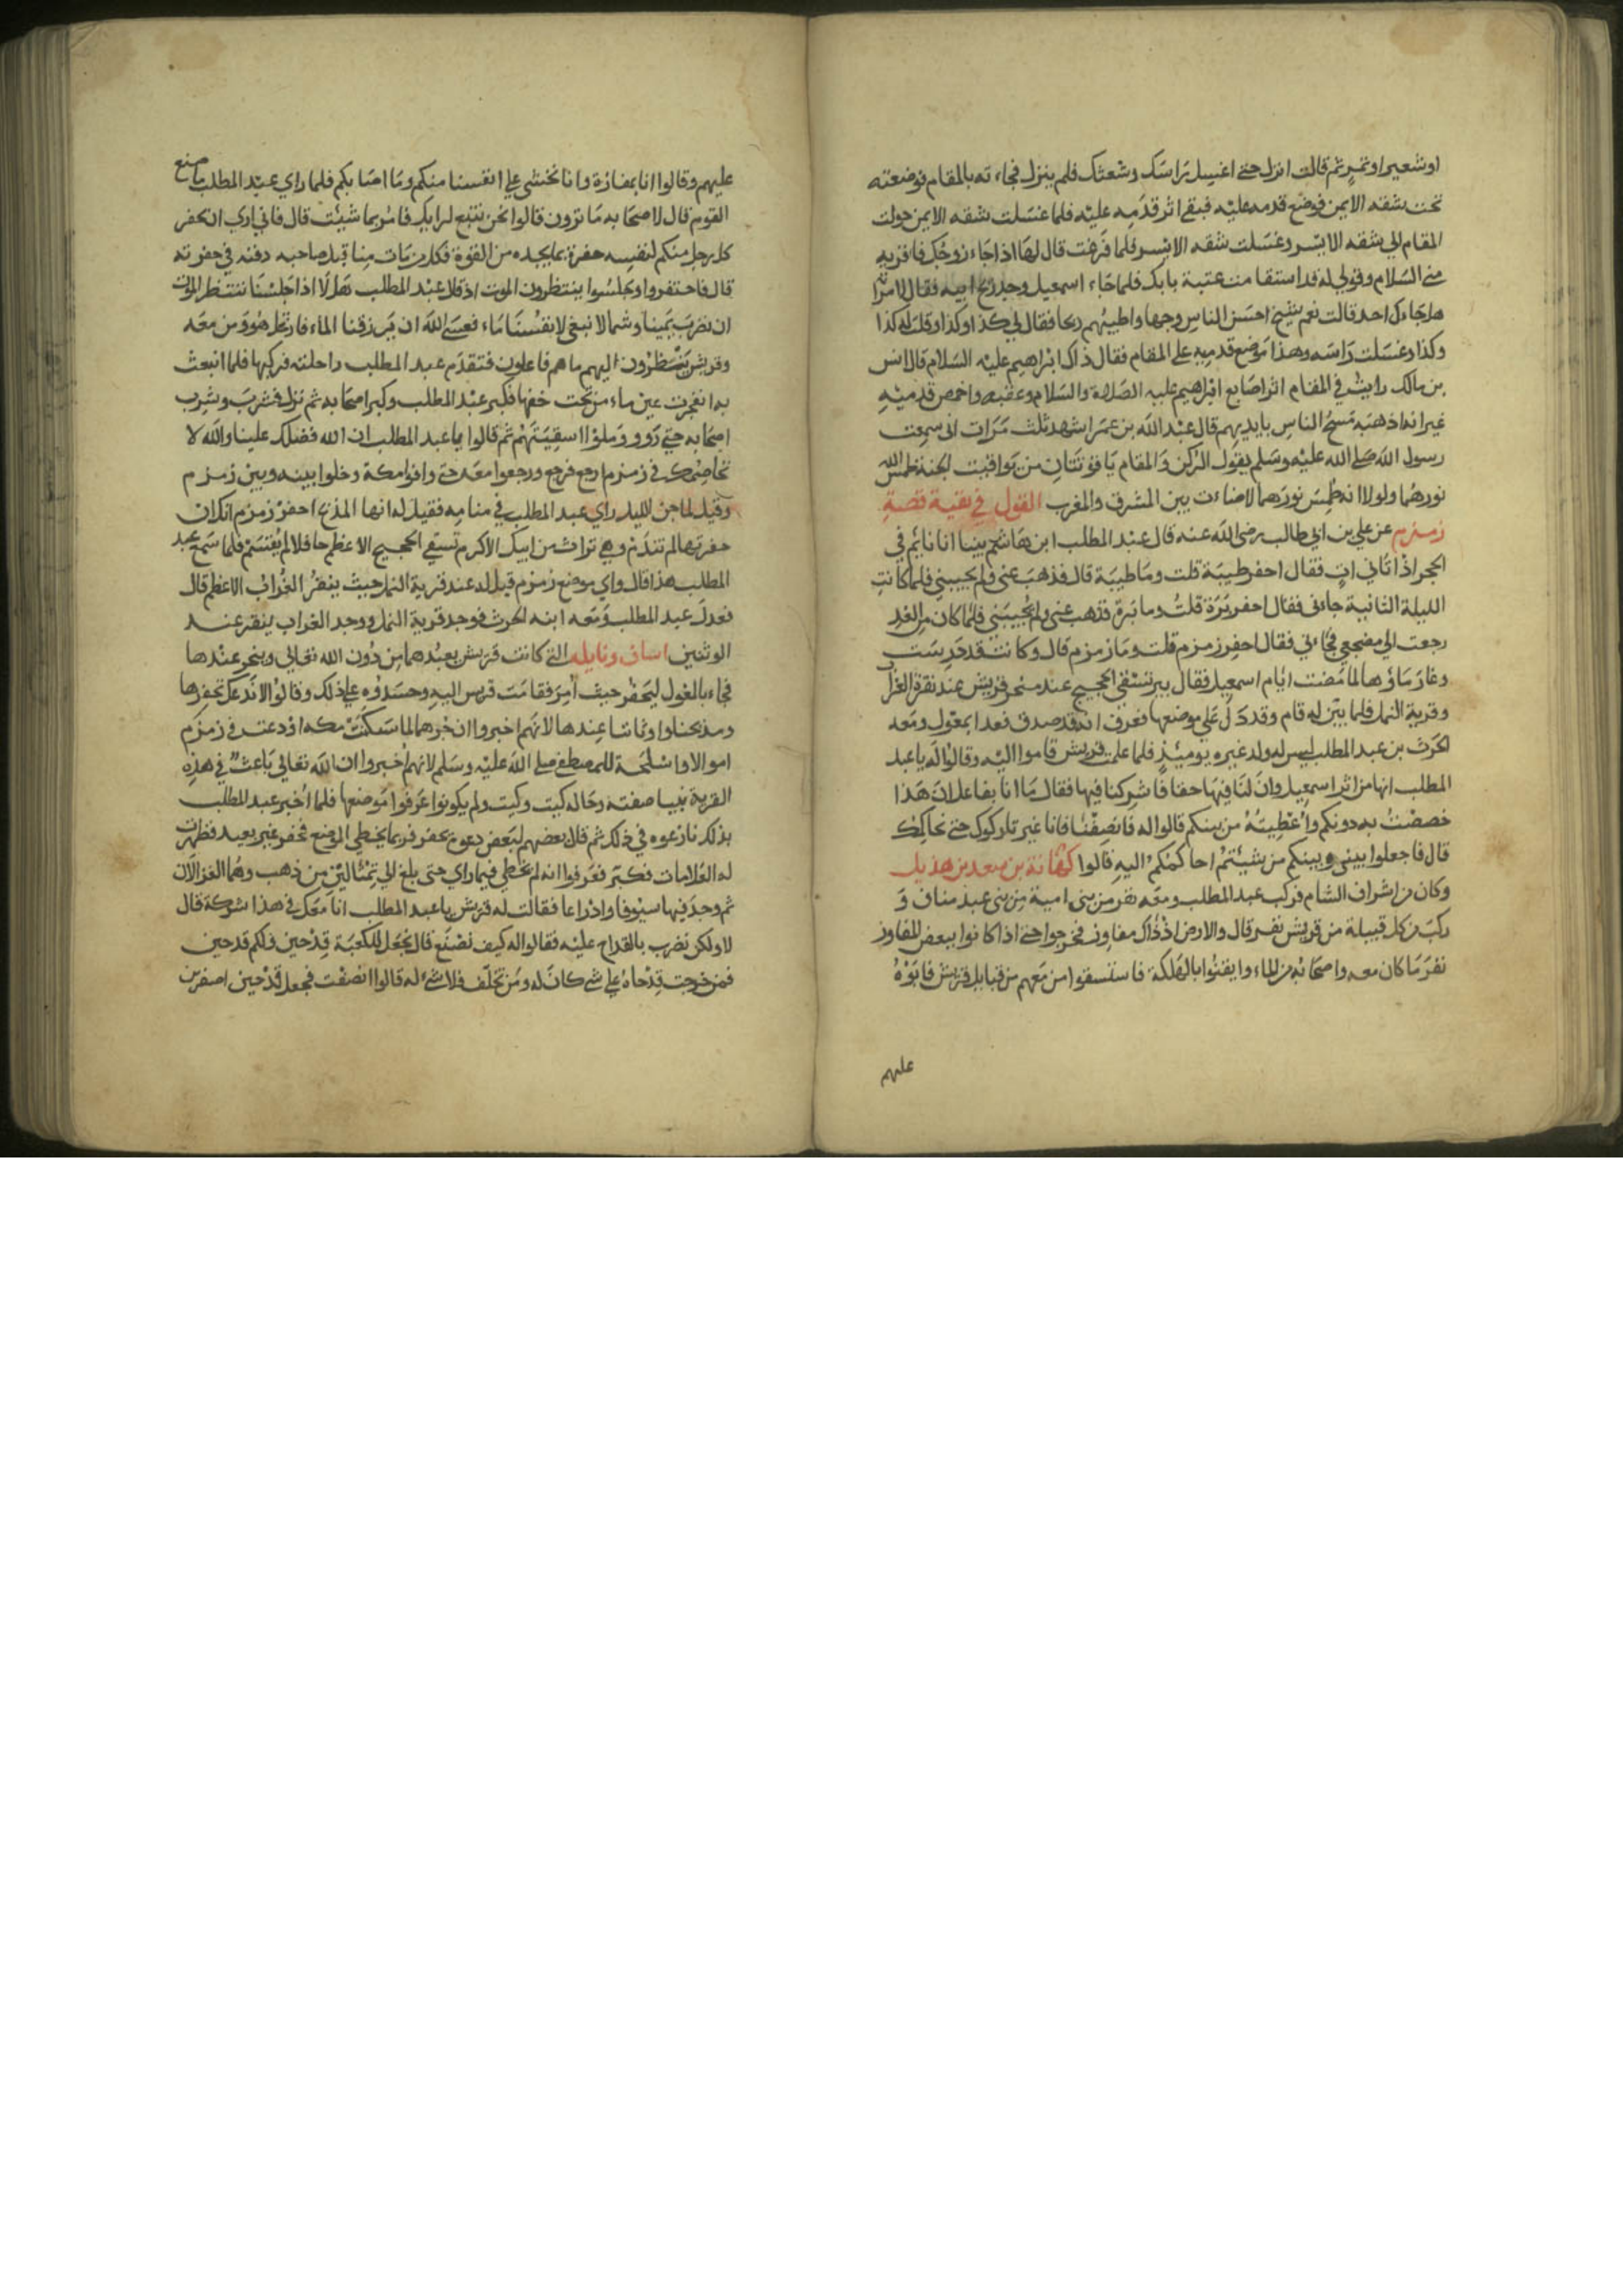 او شعير او تمر ثم قالت انزل حتى اغسل راسك وشعثك فلم ينزل فجاءته بالمقام فوضعته
تحت شقه الايمن فوضع قدمه عليه فبقى اثر قدمه عليه فلما غسلت شقه الايمن حولت
المقام الى شقه الايسر وغسلت شقه الايسر فلما فرغت قال لها اذا جاء زوجك فاقريه
منى السلام وقولى له قد استقامت عتبة بابك فلما جاء اسمعيل وجد ريح ابيه فقال لامراته
هل جاءك احد قالت نعم شيخ احسن الناس وجها واطيبهم ريحا فقال لى كذا وكذا وقلت له كذا
وكذا وغسلت راسه وهذا موضع قدميه على المقام فقال ذاك ابراهيم عليه السلام قال انس
بن مالك رايت فى المقام اثر اصابع ابراهيم عليه الصلاة والسلام وعقبه واخمص قدميه
غير انه اذهبه مسح الناس بايديهم قال عبد الله بن عمر اشهد ثلث مرات انى سمعت
رسول الله صلى الله عليه وسلم يقول الركن والمقام ياقوتتان من يواقيت الجنة طمس الله
نورهما ولولا انه طمس نورهما لاضاءت بين المشرق والمغرب القول في بقية قصة
زمزم عن علي بن ابي طالب رضى الله عنه قال عبد المطلب ابن هاشم بينا انا نايم في
الحجر اذ اتاني ات فقال احفر طيبة قلت وما طيبة قال فذهب عنى ولم يجيبني فلما كانت
الليلة الثانية جاءنى فقال احفر برة قلت وما برة فذهب عنى ولم يجيبنى فلما كان من الغد
رجعت الى مضجعي فجاءني فقال احفر زمزم قلت وما زمزم قال وكانت قد درست
وغار ماؤها لما مضت ايام اسمعيل فقال بير تسقى الحجيج عند منحر قريش عند نقرة الغراب
وقرية النمل فلما بين له قام وقد دل على موضعها فعرف انه قد صدق فغدا بمعول ومعه
الحرث بن عبد المطلب ليس له ولد غيره يوميذ فلما علمت قريش قاموا اليه وقالوا له يا عبد
المطلب انها من اثر اسمعيل وان لنا فيها حقا فاشركنا فيها فقال ما انا بفاعل ان هذا
خصصت به دونكم واعطيته من بينكم قالوا له فانصفنا فانا غير تاركوك حتى نحاكمك
قال فاجعلوا بينى وبينكم من شيئتم احاكمكم اليه قالوا كهانة بن سعد بن هذيل
وكان من اشراف الشام فركب عبد المطلب ومعه نفر من بنى امية من بنى عبد مناف و
ركب من كل قبيلة من قريش نفر قال والارض اذ ذاك مفاوز فخرجوا حتى اذا كانوا ببعض المفاوز
نفر ما كان معه واصحابه من الماء وايقنوا بالهلكة فاستسقوا من معهم من قبايل قريش فابوه
عليهم
عليهم وقالوا انا بمفازة وانا نخشى على انفسنا منكم وما اصابكم فلما راى عبد المطلب ما صنع
القوم قال لاصحابه ما ترون قالوا نحن نتبع لرايك فامر بما شيئت قال فاني ارى ان يحفر
كل رجل منكم لنفسه حفرة بما يجده من القوة فكل من مات منا قبل صاحبه دفنه في حفرته
قال فاحتفروا وجلسوا ينتظرون الموت اذ قال عبد المطلب هلا اذا جلسنا ننتظر الموت
ان نضرب يمينا وشمالا نبغي لانفسنا ماء فعسى الله ان يرزقنا الماء فارتحل هو ومن معه
وقريش ينظرون اليهم ما هم فاعلون فتقدم عبد المطلب راحلته فركبها فلما انبعث
به انفجرت عين ماء من تحت خفها فكبر عبد المطلب وكبر اصحابه ثم نزل فشرب وشرب
اصحابه حتى رووا وملوا اسقيتهم ثم قالوا يا عبد المطلب ان الله فضلك علينا والله لا
نخاصمك في زمزم ارجع فرجع ورجعوا معه حتى وافوا مكة وخلوا بينه وبين زمزم
وقيل لما جن الليل راى عبد المطلب في منامه فقيل له انها المذبح احفر زمزم انك ان
حفرتها لم تندم وهي تراث من ابيك الاكرم تسقى الحجيج الاعظم حافلا لم يقتسم فلما سمع عبد
المطلب هذا قال واى موضع زمزم قيل له عند قرية النمل حيث ينقر الغراب الاعظم قال
فعدل عبد المطلب ومعه ابنه الحرث فوجد قرية النمل ووجد الغراب ينقر عند
الوثنين اساف ونايله التى كانت قريش يعبدهما من دون الله تعالى وينحر عندها
فجاء بالغول ليحفر حيث امر فقامت قريش اليه وحسدوه على ذلك وقالوا لا ندعك تحفرها
ومذبحنا واوثاننا عندها لانهم اخبروا ان جرهما لما سكنت مكه اودعت في زمزم
اموالا واسلحة للمصطفى صلى الله عليه وسلم لانهم اخبروا ان الله تعالى باعث في هذه
القرية نبيا صفته وحاله كيت وكيت ولم يكونوا عرفوا موضعها فلما اخبر عبد المطلب
بذلك نازعوه في ذلك ثم قال بعضهم لبعض دعوه يحفر فربما يخطي الموضع فحفر غير بعيد فظهرت
له العلامات فكبر فعرفوا انه لم يخطي فيما راى حتى بلغ الى تمثالين من ذهب وهما الغزالان
ثم وجد فيها سيوفا وادراعا فقالت له قريش يا عبد المطلب انا معك في هذا شركة قال
لا ولكن نضرب بالقداح عليه فقالوا له كيف نصنع قال نجعل للكعبة قدحين ولكم قدحين
فمن خرجت قدحاه على شى كان له ومن تخلف فلا شى له قالوا انصفت فجعل قدحين اصفرين